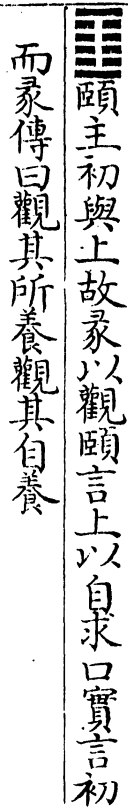 ䷚頤主初與上故彖以觀頤言上以自求口實言初
而彖傳曰觀其所養觀其自養